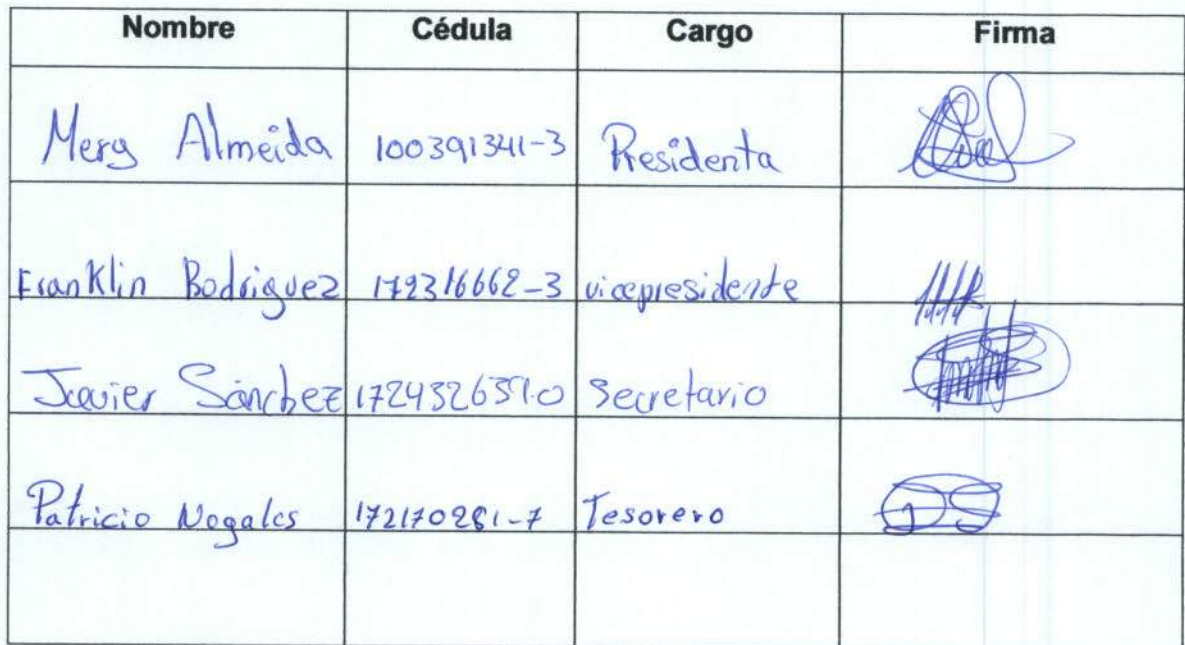 Nombre Cédula Cargo Firma
Mery Almeida 100391341-3 Presidenta
Franklin Rodriguez 172316662-3 vicepresidente
Javier Sánchez Secretario
Patricio Nogales 172170281-7 Tesorero